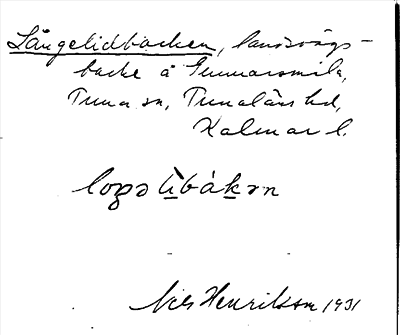 Långelidbacken, landsvägs-
backe å Gunnarsmila,
Tuna sn, Tunaläns hd,
Kalmar l.
Nils Henrikson 1931